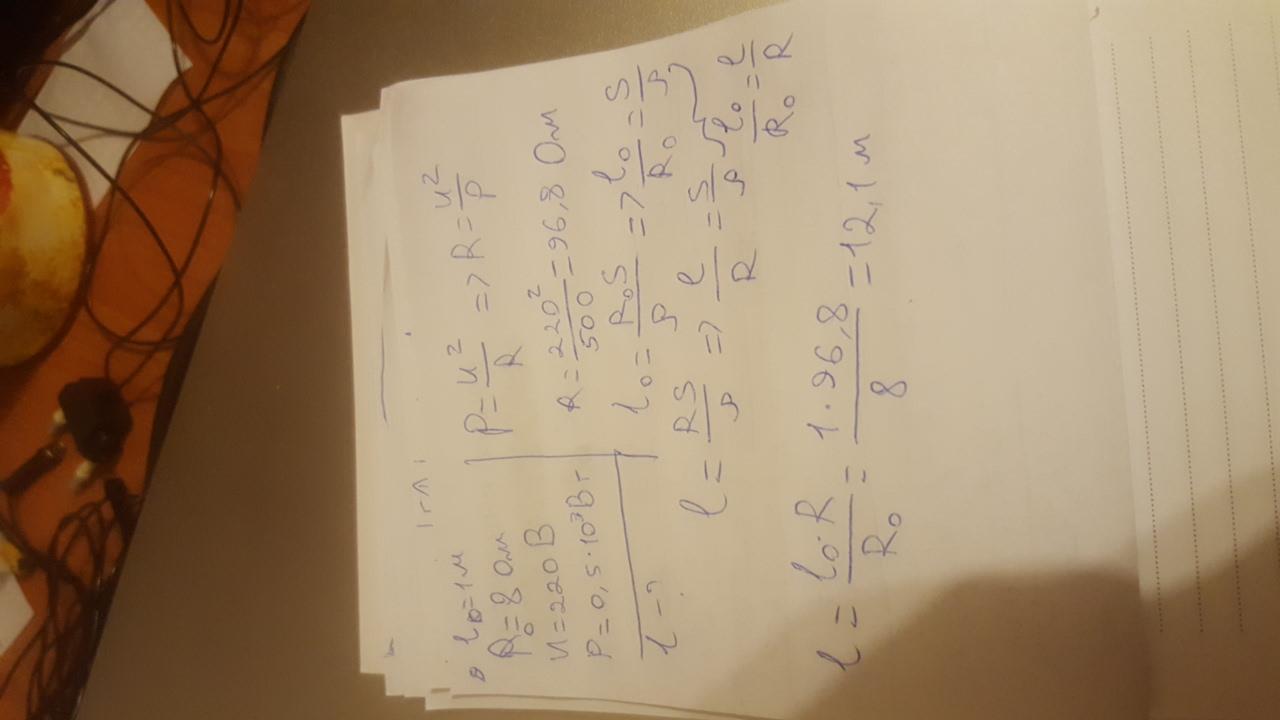 l₀=1м
R₀=8 Ом
U=220В
P=0,5·10³Вт
l-?
P=U²/R => R=U²/P
R=220²/500=96,8 Ом
l₀=R₀S/ρ => l₀/R₀=S/ρ
l=RS/ρ => l/R=S/ρ
l₀/R₀=l/R
l=l₀·R/R₀=1·96,8/8=12,1м